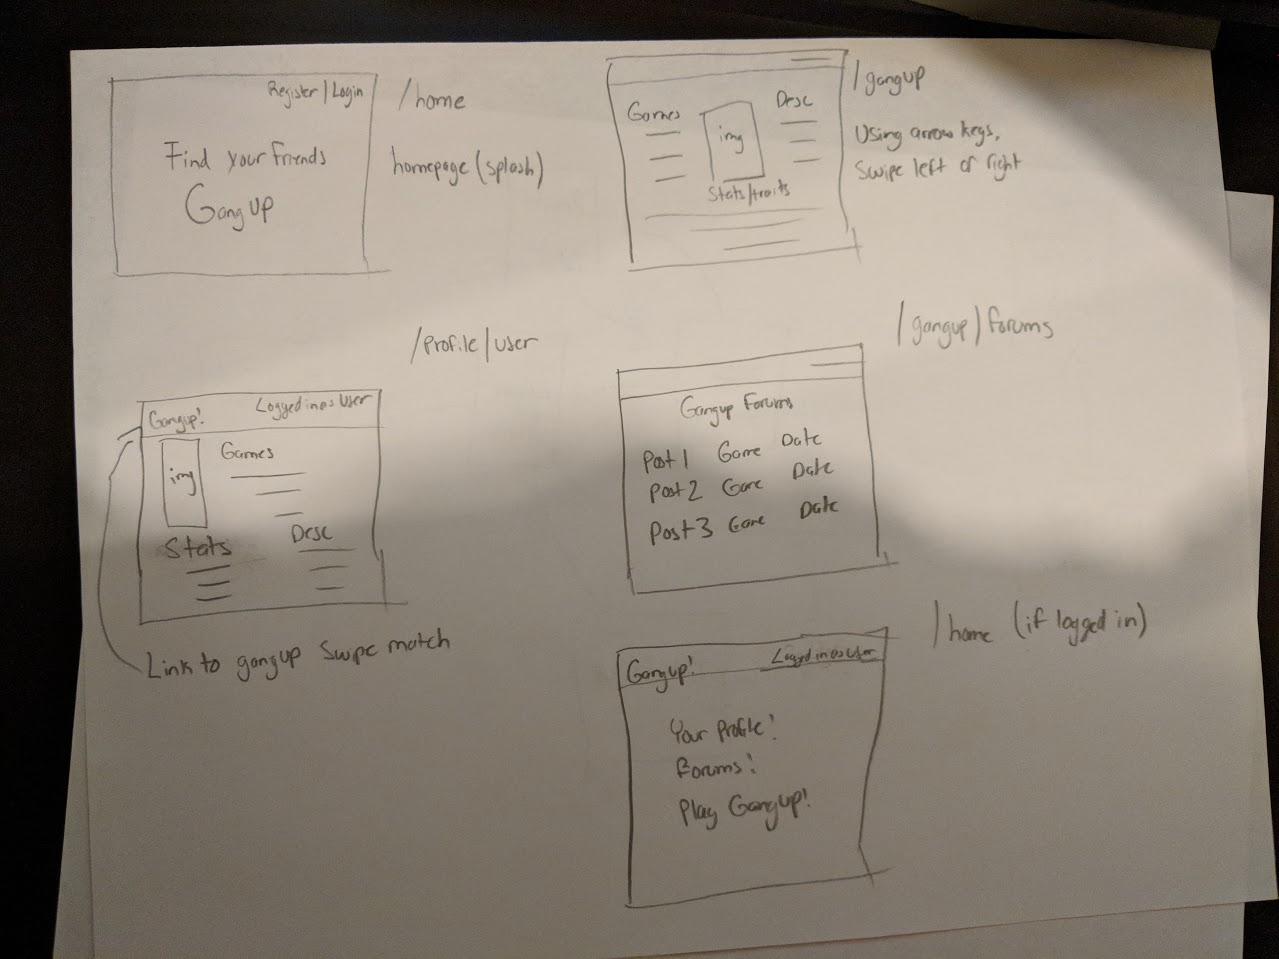 Register | Login
Find your friends
Gang Up
/home
homepage (splash)
Games
img
Desc
Stats/traits
/gangup
Using arrow keys,
Swipe left or right
/profile/user
Gangup!
Logged in as User
img
Games
Stats
Desc
Link to gangup Swipe match
/gangup/forums
Gangup Forums
Post 1 Game Date
Post 2 Game Date
Post 3 Game Date
/home (if logged in)
Gangup!
Logged in as User
Your Profile!
Forums!
Play Gangup!